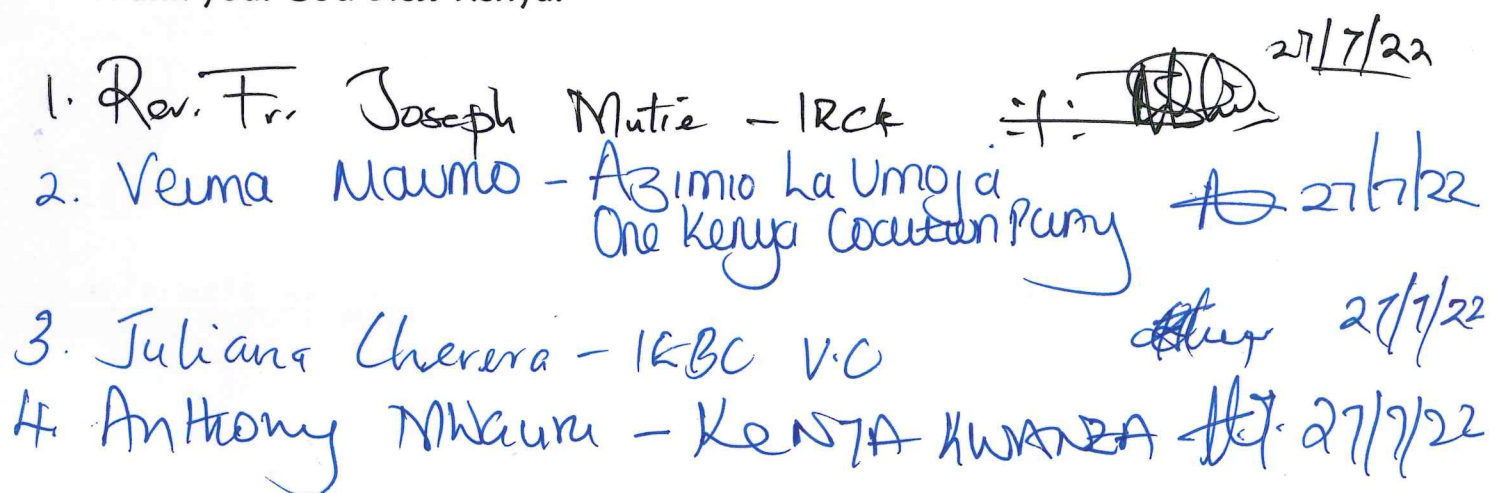 1. Rev. Fr. Joseph Mutie - IRCK 27/7/22
2. Veuma Maumo - Azimio La Umoja 27/7/22
One Kenya Coalition Party
3. Juliana Cherera - IEBC V.C 27/7/22
4. Anthony Mwaura - KENYA KWANZA 27/7/22